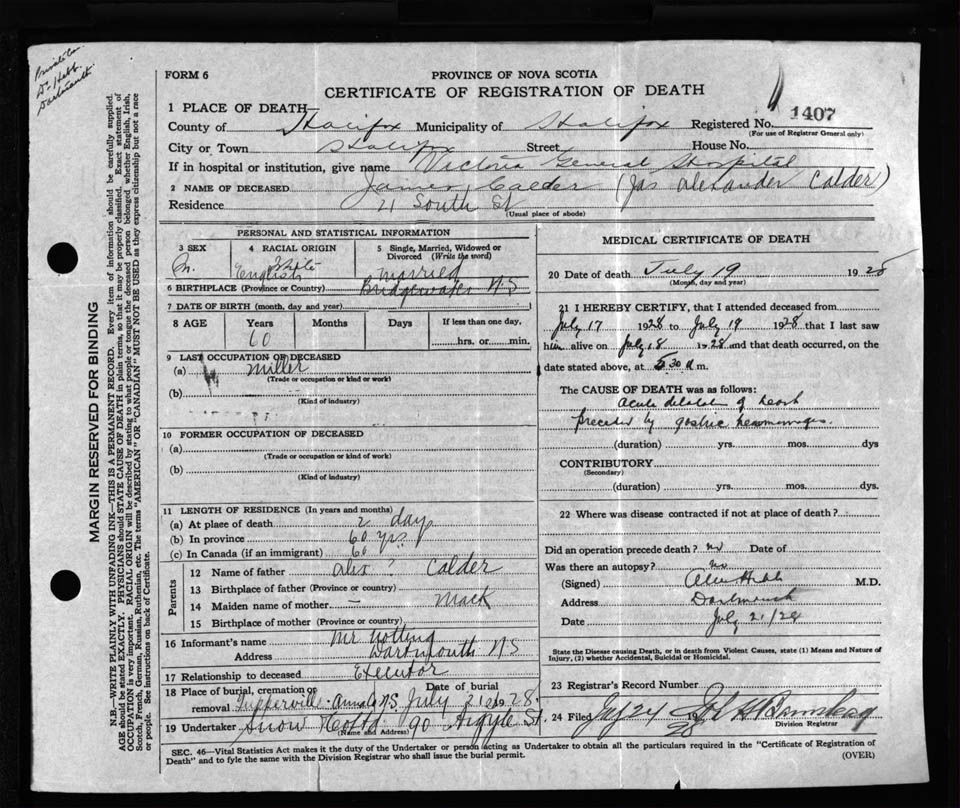 Dr Hebb
Dartmouth
FORM 6
PROVINCE OF NOVA SCOTIA
CERTIFICATE OF REGISTRATION OF DEATH
1 PLACE OF DEATH—
County of Halifax Municipality of Halifax Registered No. 1407
(For use of Registrar General only)
City or Town Halifax Street House No.
If in hospital or institution, give name Victoria General Hospital
2 NAME OF DECEASED James Calder (Jas Alexander Calder)
Residence 21 South St
(Usual place of abode)
PERSONAL AND STATISTICAL INFORMATION
3 SEX 4 RACIAL ORIGIN 5 Single, Married, Widowed or Divorced (Write the word)
M. White English Married
6 BIRTHPLACE (Province or Country) Bridgewater N.S
7 DATE OF BIRTH (month, day and year)
8 AGE Years Months Days If less than one day,
60 hrs. or min.
9 LAST OCCUPATION OF DECEASED
(a) Miller
(Trade or occupation or kind or work)
(b)
(Kind of industry)
10 FORMER OCCUPATION OF DECEASED
(a)
(Trade or occupation or kind or work)
(b)
(Kind of industry)
11 LENGTH OF RESIDENCE (In years and months)
(a) At place of death 2 days
(b) In province 60 yrs
(c) In Canada (if an immigrant) 60
Parents
12 Name of father Alex ? Calder
13 Birthplace of father (Province or country)
14 Maiden name of mother — Mack
15 Birthplace of mother (Province or country)
16 Informant's name Mr Notting
Address Dartmouth N.S
17 Relationship to deceased Executor
18 Place of burial, cremation or Date of burial
removal Tupperville Anna Co N.S. July 21 1928.
19 Undertaker Snow & Co Ltd 90 Argyle St.
(Name and Address)
MEDICAL CERTIFICATE OF DEATH
20 Date of death July 19 1928
(Month, day and year)
21 I HEREBY CERTIFY, that I attended deceased from
July 17 1928 to July 19 1928 that I last saw
him alive on July 18 1928 and that death occurred, on
date stated above, at 5.30 a m.
The CAUSE OF DEATH was as follows:
Acute dilatation of heart
preceded by gastric hemorrhages.
(duration) yrs. mos. dys
CONTRIBUTORY
(Secondary)
(duration) yrs. mos. dys.
22 Where was disease contracted if not at place of death?
Did an operation precede death? no Date of
Was there an autopsy? no
(Signed) Hebb M.D.
Address Dartmouth
Date July 21/28
State the Disease causing Death, or in death from Violent Causes, state (1) Means and Nature of
Injury, (2) whether Accidental, Suicidal or Homicidal.
23 Registrar's Record Number
24 Filed July 24 1928
Division Registrar
SEC. 46—Vital Statistics Act makes it the duty of the Undertaker or person acting as Undertaker to obtain all the particulars required in the "Certificate of Registration of
Death" and to fyle the same with the Division Registrar who shall issue the burial permit. (OVER)
MARGIN RESERVED FOR BINDING
N.B.—WRITE PLAINLY WITH UNFADING INK—THIS IS A PERMANENT RECORD. Every item of information should be carefully supplied.
AGE should be stated EXACTLY. PHYSICIANS should STATE CAUSE OF DEATH in plain terms, so that it may be properly classified. Exact statement of
OCCUPATION is very important. RACIAL ORIGIN will be described by stating to what people or tongue the deceased person belonged whether English, Irish,
Scotch, French, German, Russian, Ruthenian, etc. The terms "AMERICAN" OR "CANADIAN" MUST NOT BE USED as they express citizenship but not a race
or people. See instructions on back of Certificate.